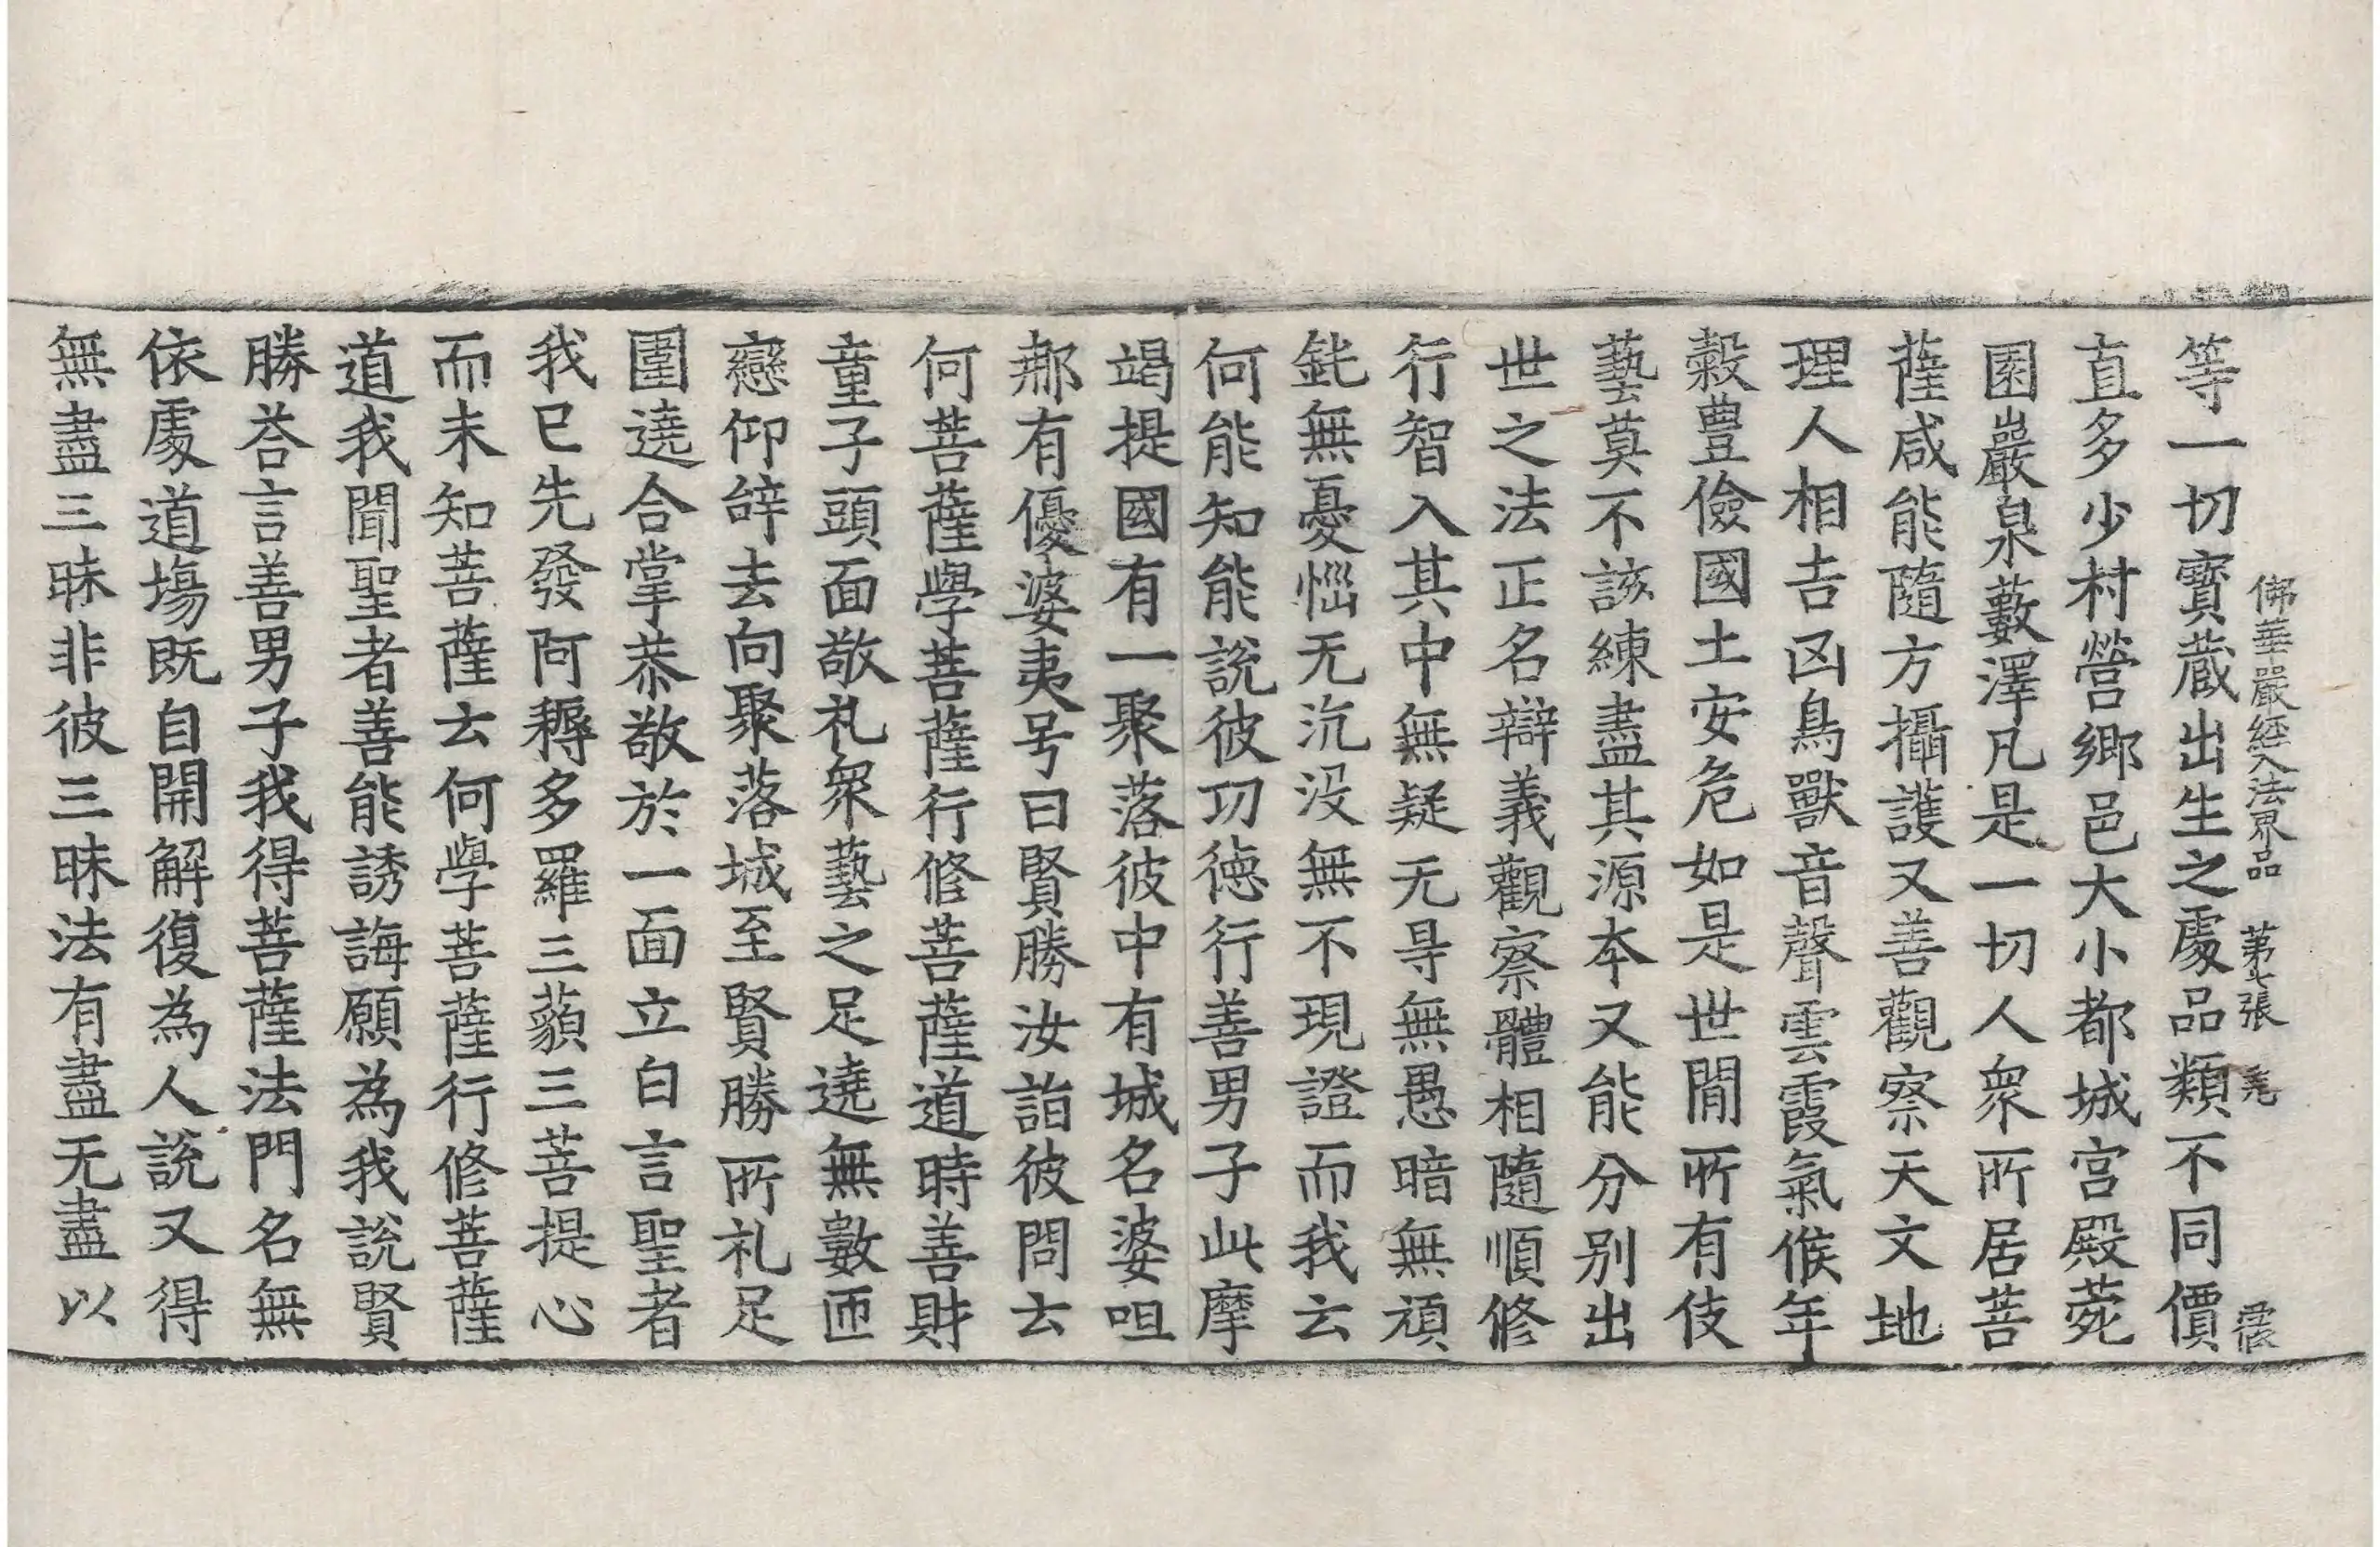 佛華嚴經入法界品　第七張　堯
等一切寳蔵出生之處品類不同價
直多少村營鄉邑大小都城宫殿菀
園巖泉藪澤凡是一切人衆所居菩
薩咸能隨方攝護又善觀察天文地
理人相吉凶鳥獸音聲雲霞氣候年
穀豊儉國土安危如是世間所有伎
藝莫不該練盡其源本又能分别出
世之法正名辯義觀察體相隨順修
行智入其中無疑无㝵無愚暗無頑
鈋無憂惱无沉没無不現證而我云
何能知能說彼功徳行善男子此摩
竭提國有一聚落彼中有城名婆咀
郍有優婆夷号曰賢勝汝詣彼問云
何菩薩學菩薩行修菩薩道時善財
童子頭面敬礼衆藝之足遶無數匝
戀仰辝去向聚落城至賢勝所礼足
圍遶合掌恭敬於一面立白言聖者
我已先發阿耨多羅三藐三菩提心
而未知菩薩云何學菩薩行修菩薩
道我聞聖者善能誘誨願為我說賢
勝荅言善男子我得菩薩法門名無
依處道場既自開解復為人說又得
無盡三昧非彼三昧法有盡无盡以